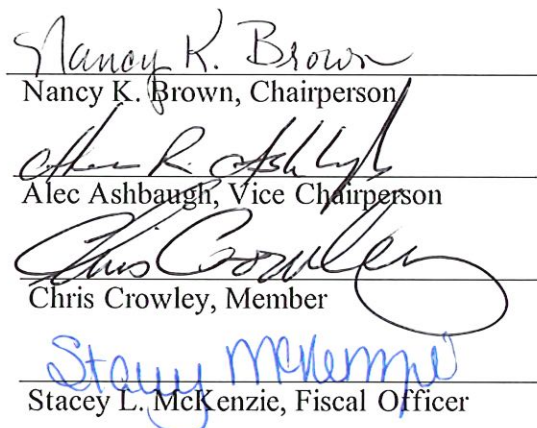 Nancy K. Brown
Nancy K. Brown, Chairperson
Alec R. Ashbaugh
Alec Ashbaugh, Vice Chairperson
Chris Crowley
Chris Crowley, Member
Stacey McKenzie
Stacey L. McKenzie, Fiscal Officer